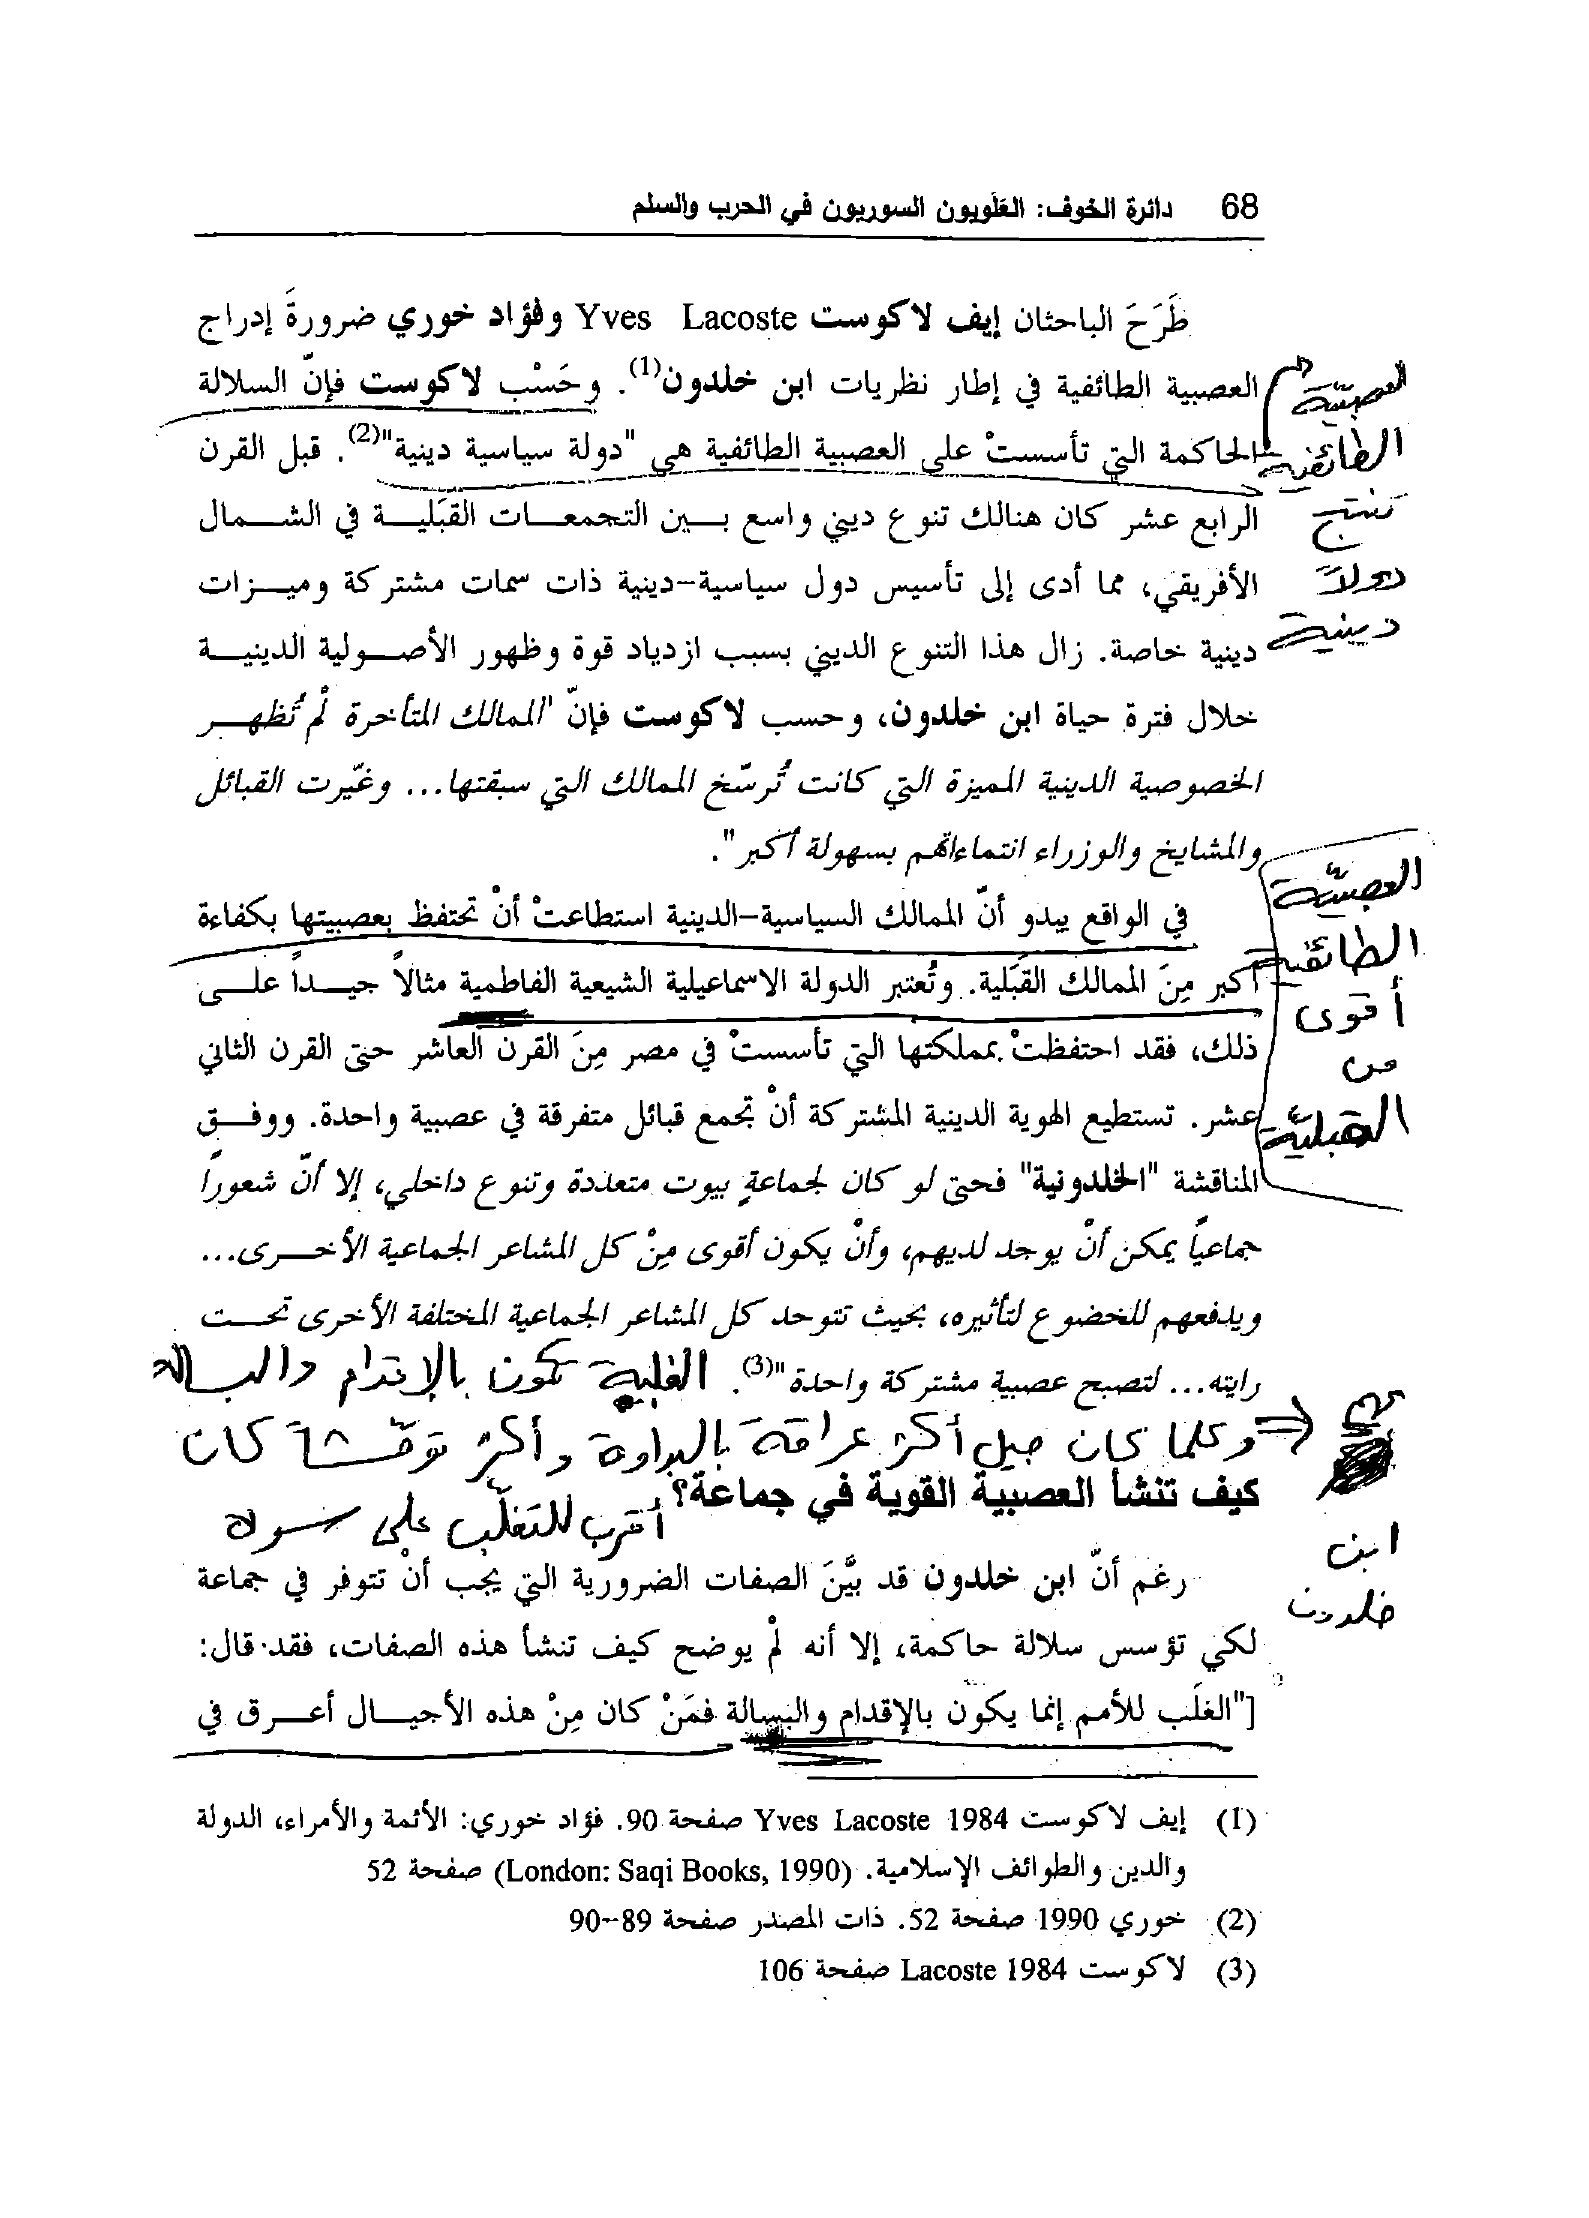 68 دائرة الخوف: العَلَويون السوريون في الحرب والسلم
طَرَحَ الباحثان إيف لاكوست Yves Lacoste وفؤاد خوري ضرورةَ إدراج
العصبية الطائفية في إطار نظريات ابن خلدون(1). وحَسْب لاكوست فإنّ السلالة
الحاكمة التي تأسستْ على العصبية الطائفية هي "دولة سياسية دينية"(2). قبل القرن
الرابع عشر كان هنالك تنوع ديني واسع بـين التجمعـات القبَليـة في الشـمال
الأفريقي، مما أدى إلى تأسيس دول سياسية-دينية ذات سمات مشتركة وميـزات
دينية خاصة. زال هذا التنوع الديني بسبب ازدياد قوة وظهور الأصـولية الدينيـة
خلال فترة حياة ابن خلدون، وحسب لاكوست فإنّ "الممالك المتأخرة لْم تُظهـر
الخصوصية الدينية المميزة التي كانت تُرسّخ الممالك التي سبقتها... وغيّرت القبائل
والمشايخ والوزراء انتماءاتهم بسهولة أكبر".
في الواقع يبدو أنّ الممالك السياسية-الدينية استطاعتْ أنْ تحتفظ بعصبيتها بكفاءة
أكبر مِنَ الممالك القبَلية. وتُعتبر الدولة الاسماعيلية الشيعية الفاطمية مثالاً جيـداً علـى
ذلك، فقد احتفظتْ بمملكتها التي تأسستْ في مصر مِنَ القرن العاشر حتى القرن الثاني
عشر. تستطيع الهوية الدينية المشتركة أنْ تجمع قبائل متفرقة في عصبية واحدة. ووفـق
المناقشة "الخلدونية" فحتى لو كان لجماعةٍ بيوت متعددة وتنوع داخلي، إلا أنّ شعوراً
جماعياً يمكن أنْ يوجد لديهم، وأنْ يكون أقوى مِنْ كل المشاعر الجماعية الأخـرى...
ويدفعهم للخضوع لتأثيره، بحيث تتوحد كل المشاعر الجماعية المختلفة الأخرى تحـت
رايته... لتصبح عصبية مشتركة واحدة"(3). الغلبة تكون بالإقدام والبسالة
⇐ وكلما كان جيل أكثر عراقة بالبداوة وأكثر توحّشاً كان
كيف تنشأ العصبية القوية في جماعة؟
أقرب للتغلّب على سواه
رغم أنّ ابن خلدون قد بيَّنَ الصفات الضرورية التي يجب أنْ تتوفر في جماعة
لكي تؤسس سلالة حاكمة، إلا أنه لْم يوضح كيف تنشأ هذه الصفات، فقد قال:
["الغلَب للأمم إنما يكون بالإقدام والبسالة فمَنْ كان مِنْ هذه الأجيـال أعـرق في
(1) إيف لاكوست Yves Lacoste 1984 صفحة 90. فؤاد خوري: الأئمة والأمراء، الدولة
والدين والطوائف الإسلامية. (London: Saqi Books, 1990) صفحة 52
(2) خوري 1990 صفحة 52. ذات المصدر صفحة 89-90
(3) لاكوست Lacoste 1984 صفحة 106
العصبيّة
الطائفية
تنتج
دولاً
دينية
العصبيّة
الطائفية
أقوى
من
القبليّة
ابن
خلدون